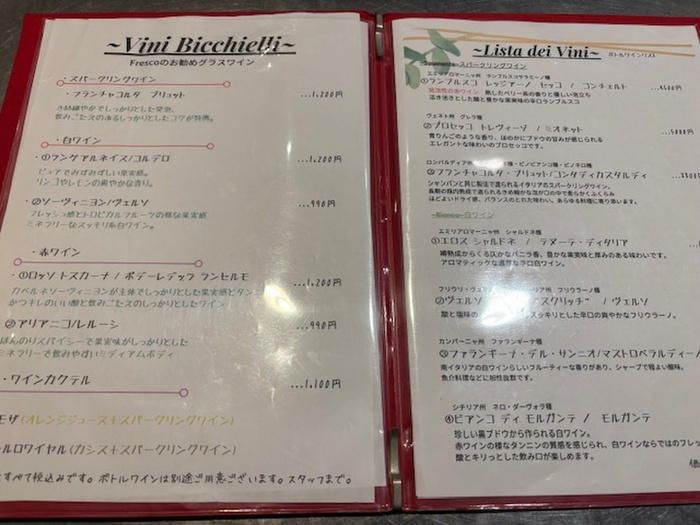 ~Vini Bicchielli~
Frescoのお勧めグラスワイン
・スパークリングワイン
・フランチャコルタ ブリュット ...1,200円
きめ細やかでしっかりとした発泡、
飲みごたえのあるしっかりとしたコクが特徴。
・白ワイン
・①ランゲアルネイズ/コルデロ ...1,200円
ピュアでみずみずしい果実感。
リンゴやレモンの爽やかな香り。
・②ソーヴィニヨン/ヴェルソ ...990円
フレッシュ感とトロピカルフルーツの様な果実感
ミネラリーなスッキリ系白ワイン。
・赤ワイン
・①ロッソ トスカーナ / ポデーレデッラ ランセルモ ...1,200円
カベルネソーヴィニヨンが主体でしっかりとした果実感とタン
かつキレのいい酸と飲みごたえのしっかりとしたワイン
②アリアニコ/レルーシ ...990円
ほんのりスパイシーで果実味がしっかりとした
ミネラリーで飲みやすいミディアムボディ
・ワインカクテル ...1,100円
モザ(オレンジジュース+スパークリングワイン)
ールロワイヤル(カシス+スパークリングワイン)
すべて税込みです。ボトルワインは別途ご用意ございます。スタッフまで。
~Lista dei Vini~ ボトルワインリスト
~Spumante~スパークリングワイン
エミリアロマーニャ州 ランブルスコサラミーノ種
①ランブルスコ レッジアーノ セッコ / コンチェルト ...4500円
発泡性の赤ワイン 熟したベリー系の香りと優しい泡立ち
活き活きとした酸と豊かな果実味の辛口ランブルスコ
ヴェネト州 グレラ
②プロセッコ トレヴィーゾ / ミオネット ...5000円
青りんごのような香り、ほのかにブドウの甘みが感じられる
エレガントな味わいのプロセッコです。
ロンバルディア州 ピノビアンコ種・ピノネロ種
③フランチャコルタ・ブリュット/コンタディカスタルディ
シャンパンと同じ製法で造られるイタリアのスパークリングワイン。
長期の瓶内熟成で造られるきめ細かな泡が口の中で柔らかくふくらみ
ほどよいドライ感、バランスのとれた味わい。あらゆる料理に寄り添います。
~Bianco~白ワイン
エミリアロマーニャ州 シャルドネ種
①エロス シャルドネ / ラヌーテ・ディタリア
樽熟成からくる仄かなバニラ香、豊かな果実味と厚みのある味わいです。
アロマティックな濃厚な辛口白ワイン。
フリウリ・ヴェ
②ヴェルソ スクリッチ / ヴェルソ
酸と塩味の スッキリとした辛口の爽やかなフリウラーノ。
カンパーニャ州 ファランギーナ種
③ファランギーナ・デル・サンニオ/マストロベラルディー
南イタリアの白ワインらしいフルーティーな香りがあり、シャープで程よい酸味。
魚介料理などに相性抜群です。
シチリア州 ネロ・ダーヴォラ種
④ビアンコ ディ モルガンテ / モルガンテ
珍しい黒ブドウから作られる白ワイン。
赤ワインの様なタンニンの質感を感じられ、白ワインならではのフレッ
酸とキリっとした飲み口が楽しめます。